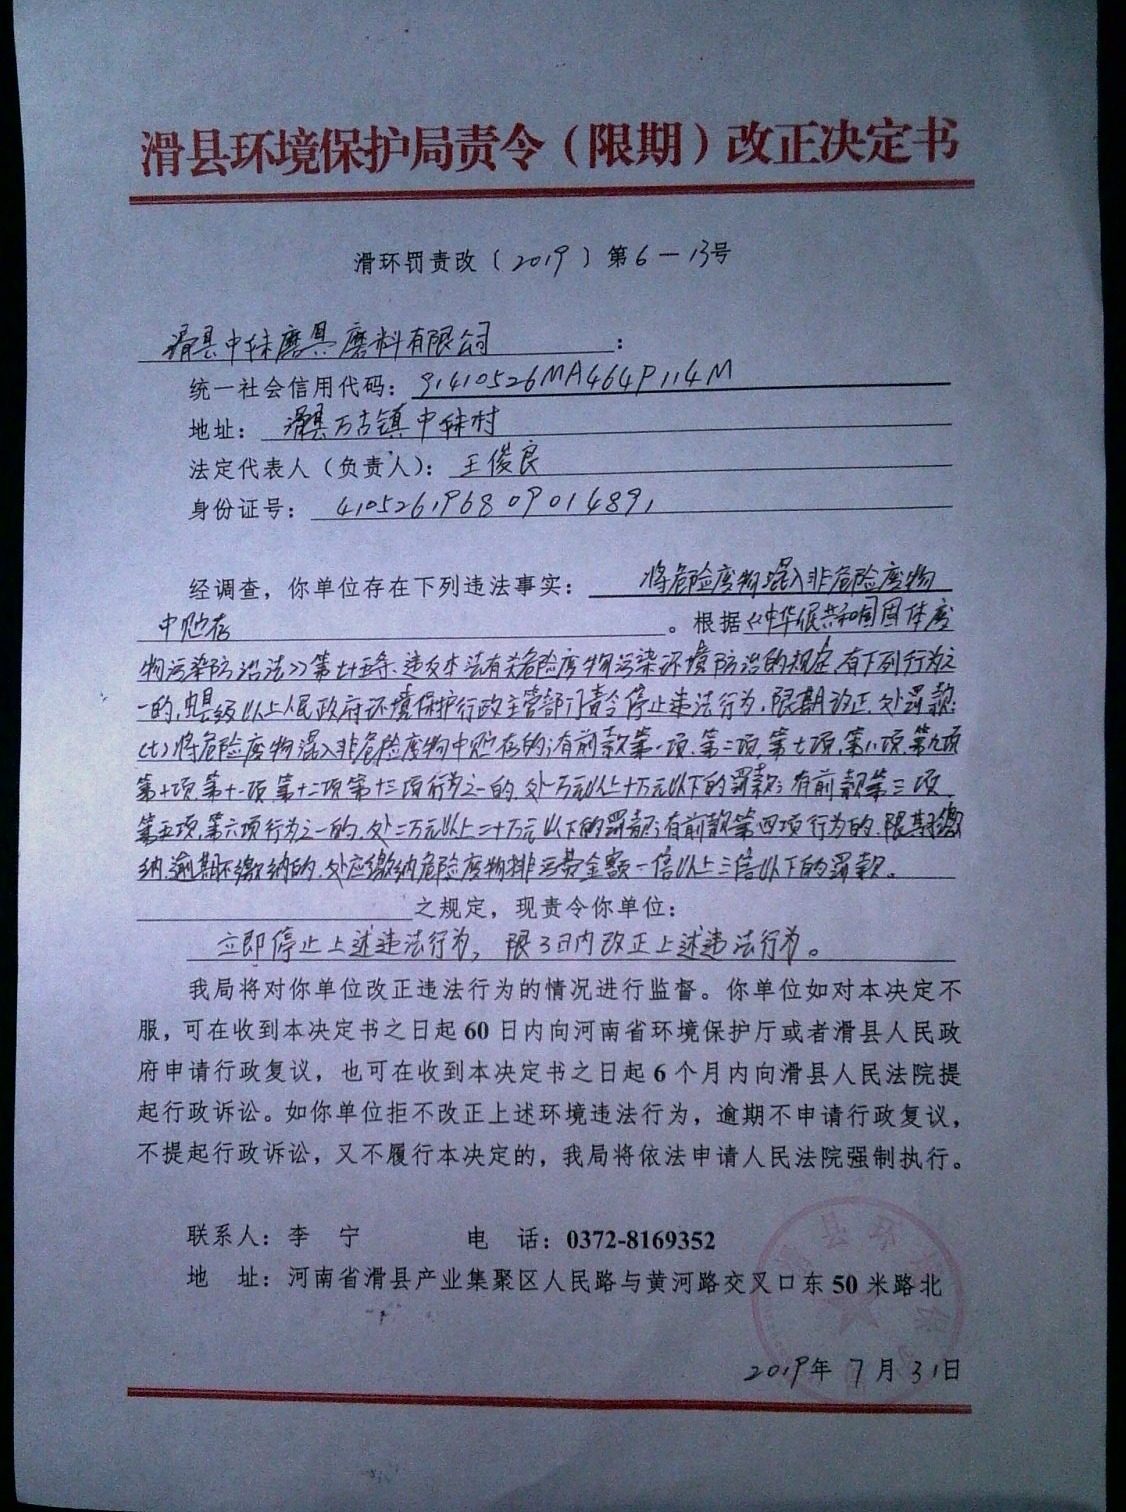 滑县环境保护局责令（限期）改正决定书
滑环罚责改（2019）第6－13号
滑县中秣磨具磨料有限公司：
统一社会信用代码：91410526MA464P114M
地址：滑县万古镇中秣村
法定代表人（负责人）：王俊良
身份证号：410526196809014891
经调查，你单位存在下列违法事实：将危险废物混入非危险废物
中贮存。根据《中华人民共和国固体废
物污染防治法》第七十五条、违反本法有关危险废物污染环境防治的规定,有下列行为之
一的,由县级以上人民政府环境保护行政主管部门责令停止违法行为,限期改正,处罚款:
(七)将危险废物混入非危险废物中贮存的;有前款第一项、第二项、第七项、第八项、第九项
第十项、第十一项、第十二项、第十三项行为之一的,处一万元以上十万元以下的罚款;有前款第三项、
第五项、第六项行为之一的,处二万元以上二十万元以下的罚款;有前款第四项行为的,限期缴
纳,逾期不缴纳的,处应缴纳危险废物排污费金额一倍以上三倍以下的罚款。
之规定，现责令你单位：
立即停止上述违法行为，限3日内改正上述违法行为。
我局将对你单位改正违法行为的情况进行监督。你单位如对本决定不
服，可在收到本决定书之日起60日内向河南省环境保护厅或者滑县人民政
府申请行政复议，也可在收到本决定书之日起6个月内向滑县人民法院提
起行政诉讼。如你单位拒不改正上述环境违法行为，逾期不申请行政复议，
不提起行政诉讼，又不履行本决定的，我局将依法申请人民法院强制执行。
联系人：李 宁 电 话：0372-8169352
地 址：河南省滑县产业集聚区人民路与黄河路交叉口东50米路北
2019年7月31日